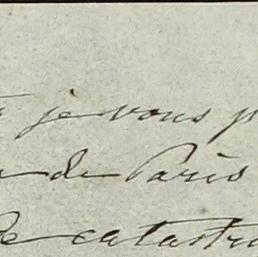 je vous p
de Paris
de catastro